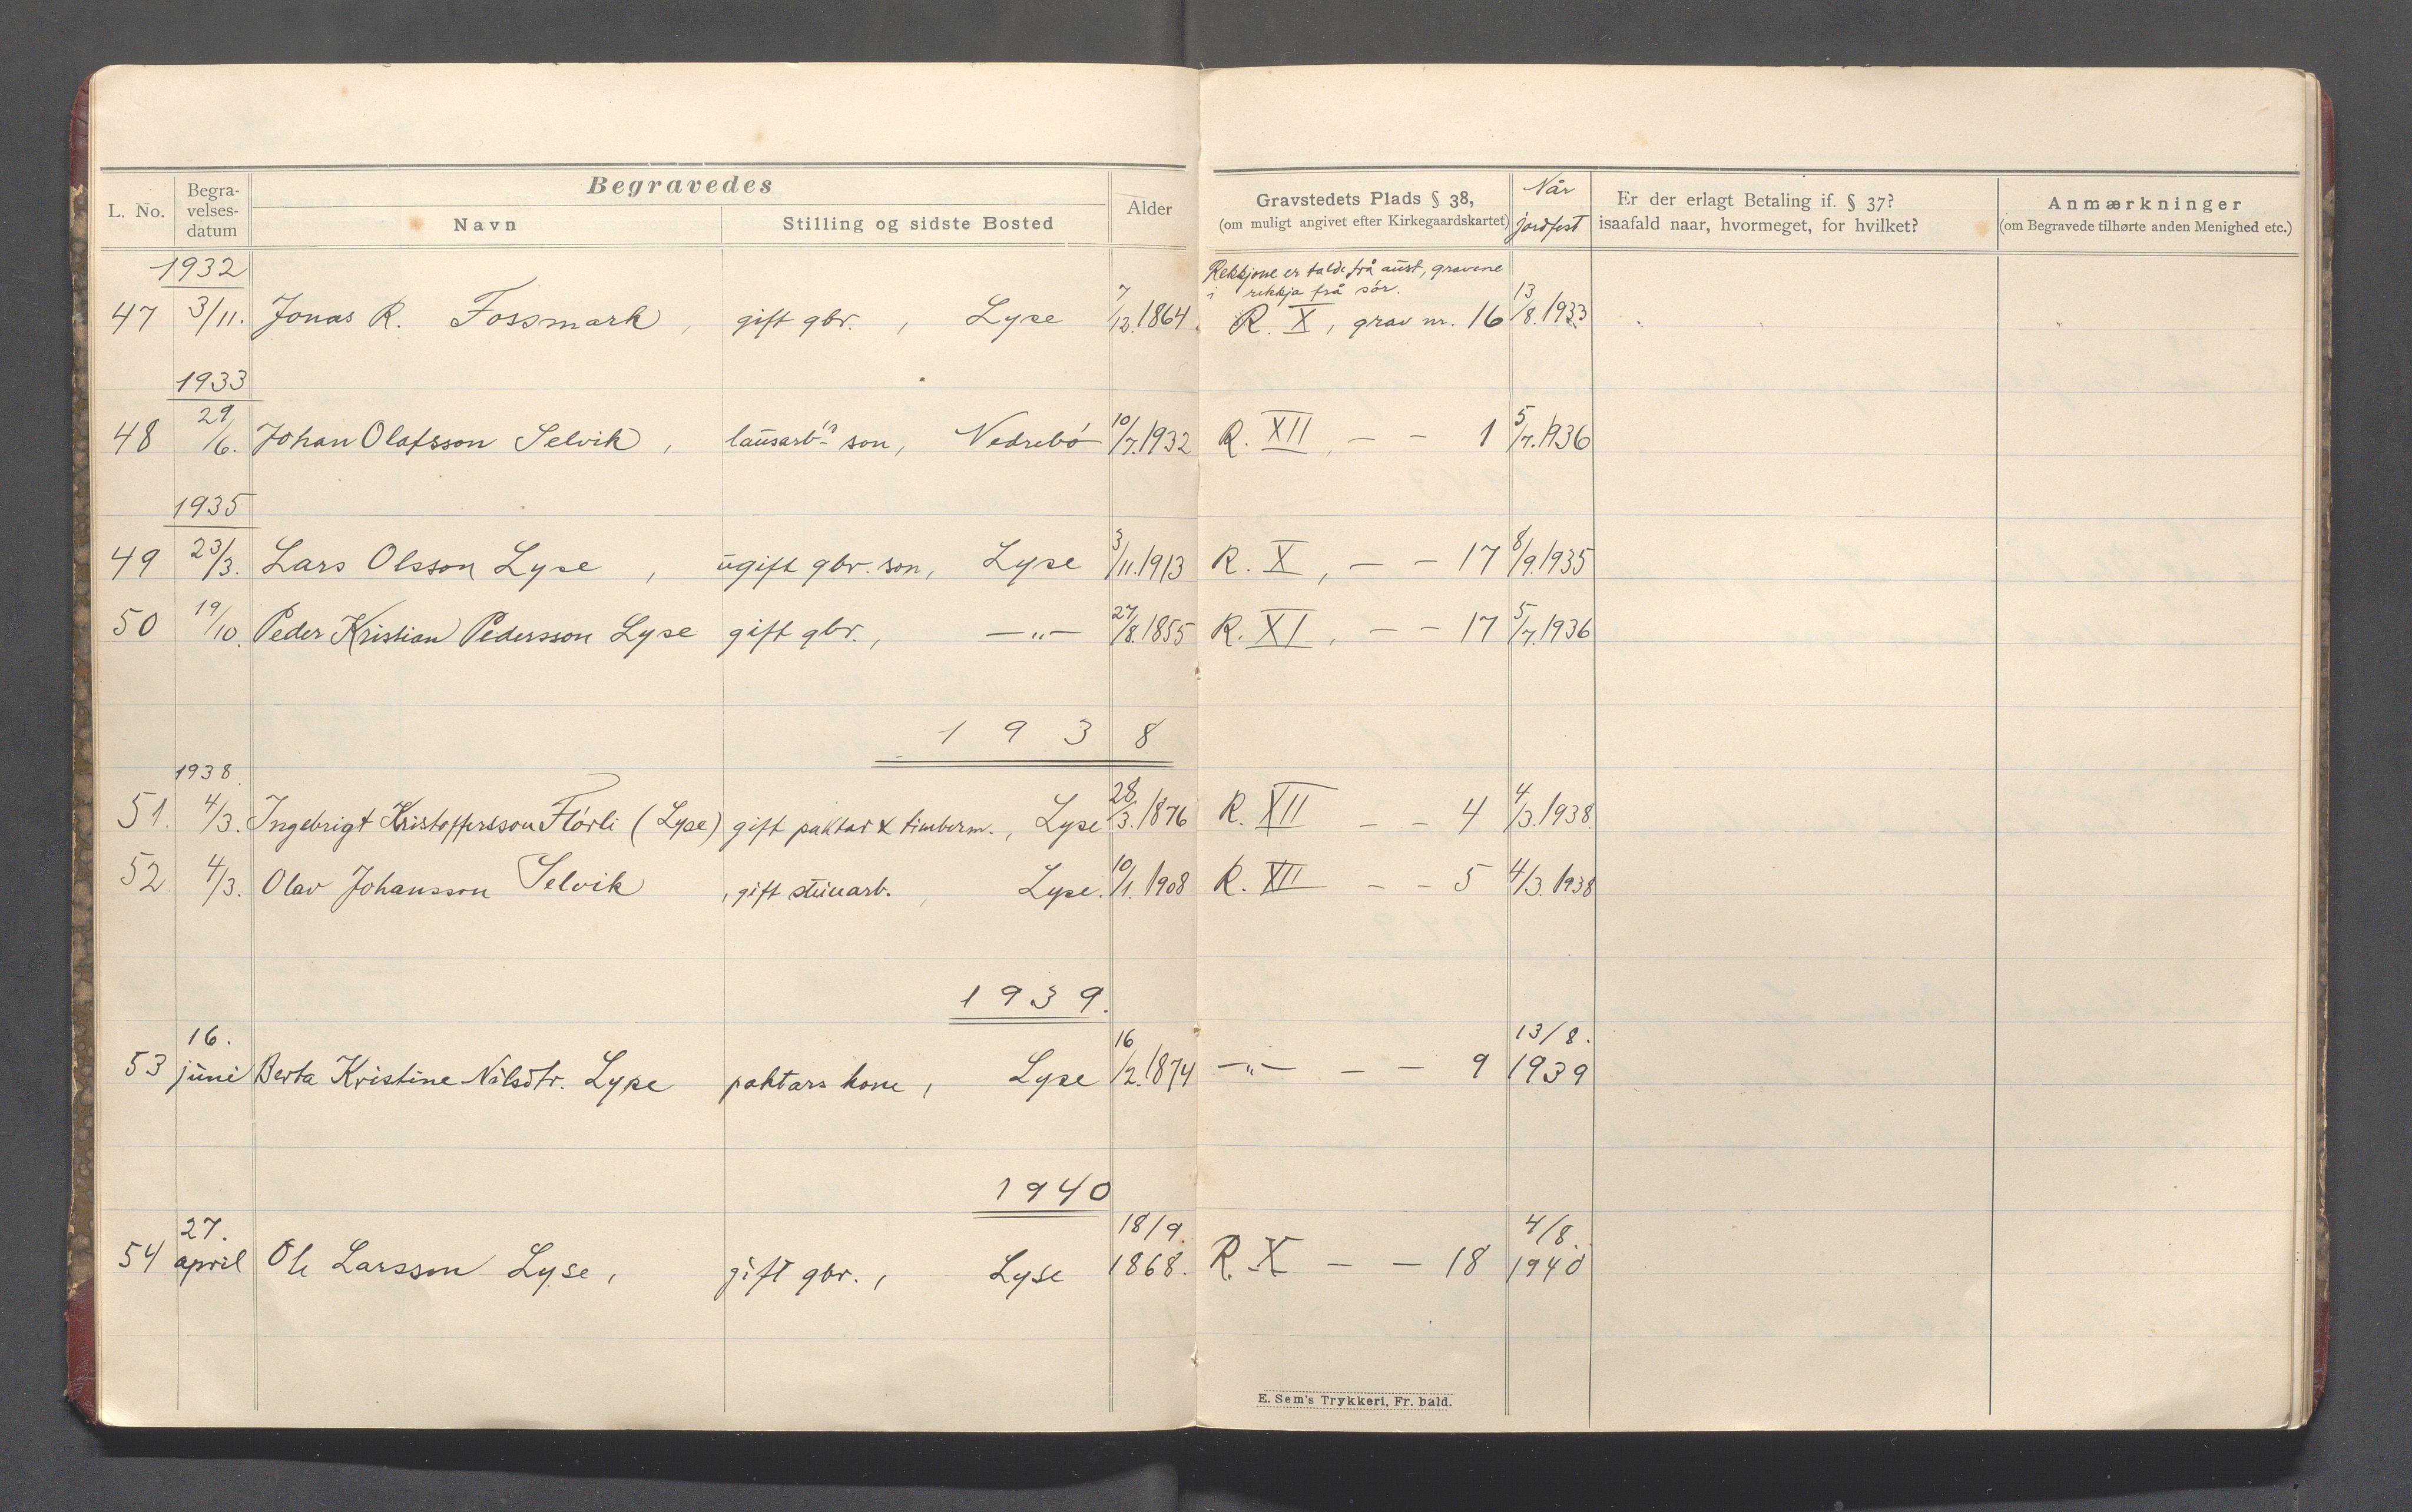 Begravedes
L. No. Begra-velses-datum Navn Stilling og sidste Bosted Alder Gravstedets Plads § 38, (om muligt angivet efter Kirkegaardskartet) Når jordfest Er der erlagt Betaling if. § 37? isaafald naar, hvormeget, for hvilket? Anmærkninger (om Begravede tilhørte anden Menighed etc.)
1932
Rekkjone er talde frå aust, gravene
i rekkja frå sør.
47 3/11. Jonas R. Fossmark, gift gbr., Lyse 7/12.1864. R. X, grav nr. 16 13/8.1933
1933
48 29/6. Johan Olafsson Selvik, lausarb.s son, Nedrebö 10/7.1932 R. XII, — – 1 5/7.1936
1935
49 23/3. Lars Olsson Lyse, ugift gbr. son, Lyse 3/11.1913 R. X, — – 17 8/9.1935
50 19/10. Peder Kristian Pedersson Lyse gift gbr., —„— 27/8.1855 R. XI, — – 17 5/7.1936
1938
1938.
51. 4/3. Ingebrigt Kristoffersson Flörli (Lyse) gift paktar & timberm., Lyse 28/3.1876 R. XII – – 4 4/3.1938.
52. 4/3. Olav Johansson Selvik, gift steinarb., Lyse. 10/1.1908 R. XII – – 5 4/3.1938
1939.
53 16. juni Berta Kristine Nilsdtr. Lyse paktars kone, Lyse 16/2.1874 —„— – – 9 13/8. 1939
1940
54 27. april Ole Larsson Lyse, gift gbr., Lyse 18/9. 1868. R. X – – 18 4/8. 1940
E. Sem's Trykkeri, Fr. hald.